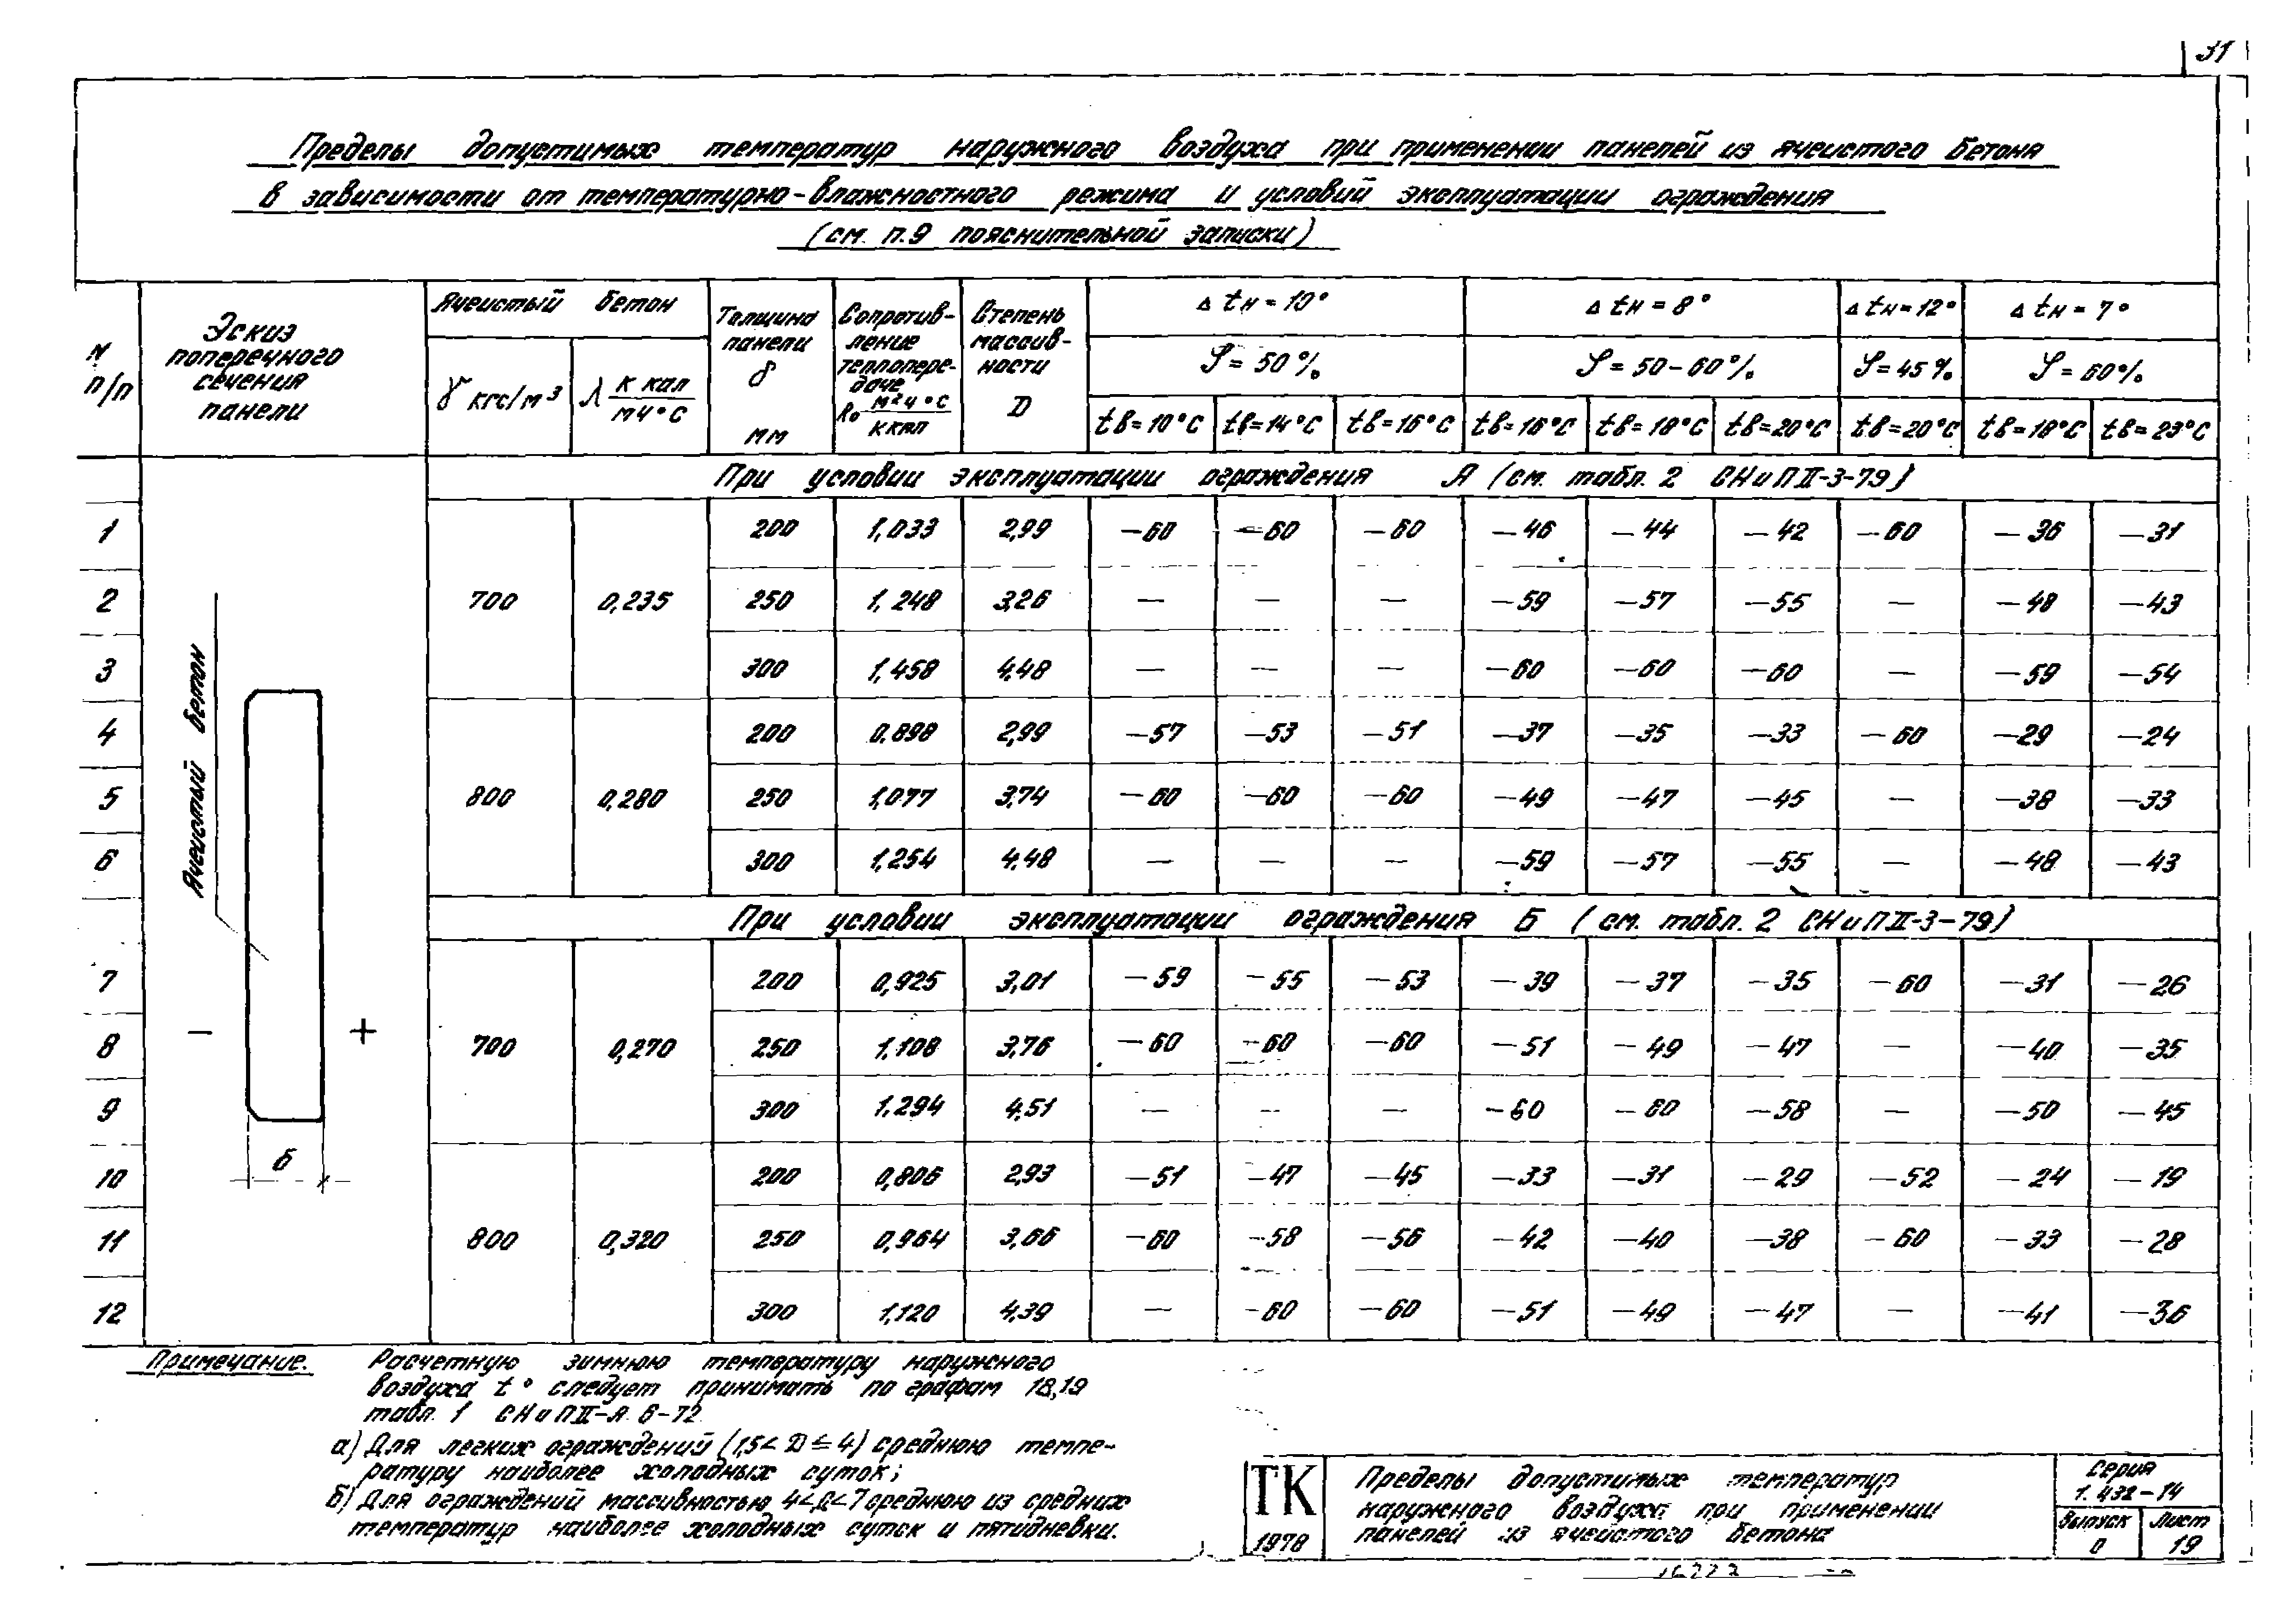 31
Пределы допустимых температур наружного воздуха при применении панелей из ячеистого бетона
в зависимости от температурно-влажностного режима и условий эксплуатации ограждения
(см. п.9 пояснительной записки)
N п/п
Эскиз поперечного сечения панели
Ячеистый бетон
γ кгс/м³
λ к кал / м ч °С
Толщина панели δ мм
Сопротив-ление теплопере-даче Rо м² ч °С / ккал
Степень массив-ности D
Δ tн = 10° Δ tн = 8° Δ tн = 12° Δ tн = 7°
φ = 50% φ = 50-60% φ = 45% φ = 60%
tв=10°С tв=14°С tв=16°С tв=16°С tв=18°С tв=20°С tв=20°С tв=18°С tв=23°С
При условии эксплуатации ограждения А (см. табл. 2 СНиП II-3-79)
1 200 1,033 2,99 -60 -60 -60 -46 -44 -42 -60 -36 -31
2 700 0,235 250 1,248 3,26 — — — -59 -57 -55 — -48 -43
3 300 1,458 4,48 — — — -60 -60 -60 — -59 -54
4 200 0,898 2,99 -57 -53 -51 -37 -35 -33 -60 -29 -24
5 800 0,280 250 1,077 3,74 -60 -60 -60 -49 -47 -45 — -38 -33
6 300 1,254 4,48 — — — -59 -57 -55 — -48 -43
Ячеистый бетон
При условии эксплуатации ограждения Б (см. табл. 2 СНиП II-3-79)
7 200 0,925 3,01 -59 -55 -53 -39 -37 -35 -60 -31 -26
8 700 0,270 250 1,108 3,76 -60 -60 -60 -51 -49 -47 — -40 -35
9 300 1,294 4,51 — — — -60 -60 -58 — -50 -45
10 200 0,806 2,93 -51 -47 -45 -33 -31 -29 -52 -24 -19
11 800 0,320 250 0,964 3,66 -60 -58 -56 -42 -40 -38 -60 -33 -28
12 300 1,120 4,39 — -60 -60 -51 -49 -47 — -41 -36
− +
δ
Примечание. Расчетную зимнюю температуру наружного
воздуха t° следует принимать по графам 18,19
табл. 1 СНиП II-А. 6-72
а) Для легких ограждений (1,5< D ≤ 4) среднюю темпе-
ратуру наиболее холодных суток;
б) Для ограждений массивностью 4<D<7 среднюю из средних
температур наиболее холодных суток и пятидневки.
ТК
1978
Пределы допустимых температур
наружного воздуха при применении
панелей из ячеистого бетона
Серия
1. 432-14
Выпуск 0
Лист 19